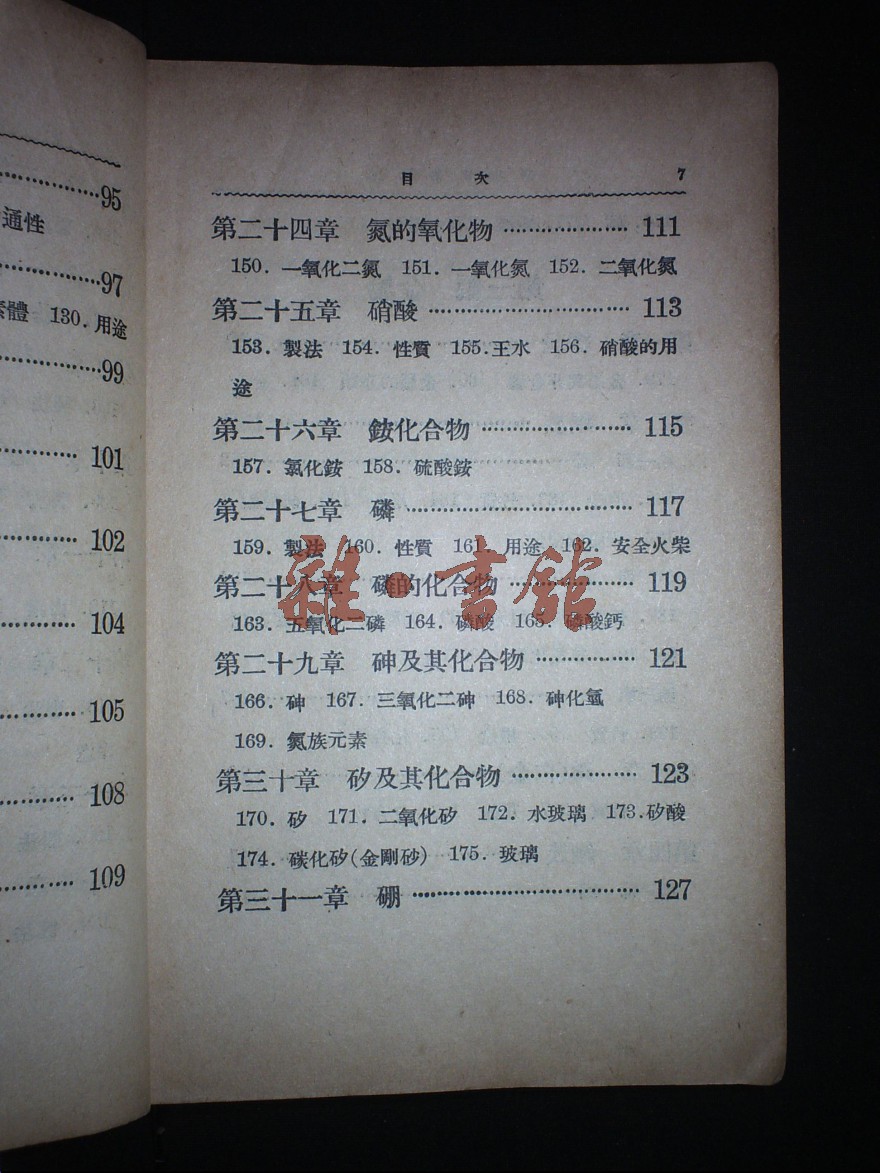 95
通性
97
130. 用途
99
101
102
104
105
108
109
目 次 7
第二十四章 氮的氧化物 111
150. 一氧化二氮 151. 一氧化氮 152. 二氧化氮
第二十五章 硝酸 113
153. 製法 154. 性質 155. 王水 156. 硝酸的用
途
第二十六章 銨化合物 115
157. 氯化銨 158. 硫酸銨
第二十七章 磷 117
159. 製法 160. 性質 161. 用途 162. 安全火柴
第二十八章 磷的化合物 119
163. 五氧化二磷 164. 磷酸 165. 磷酸鈣
第二十九章 砷及其化合物 121
166. 砷 167. 三氧化二砷 168. 砷化氫
169. 氮族元素
第三十章 矽及其化合物 123
170. 矽 171. 二氧化矽 172. 水玻璃 173. 矽酸
174. 碳化矽(金剛砂) 175. 玻璃
第三十一章 硼 127
雜·書館